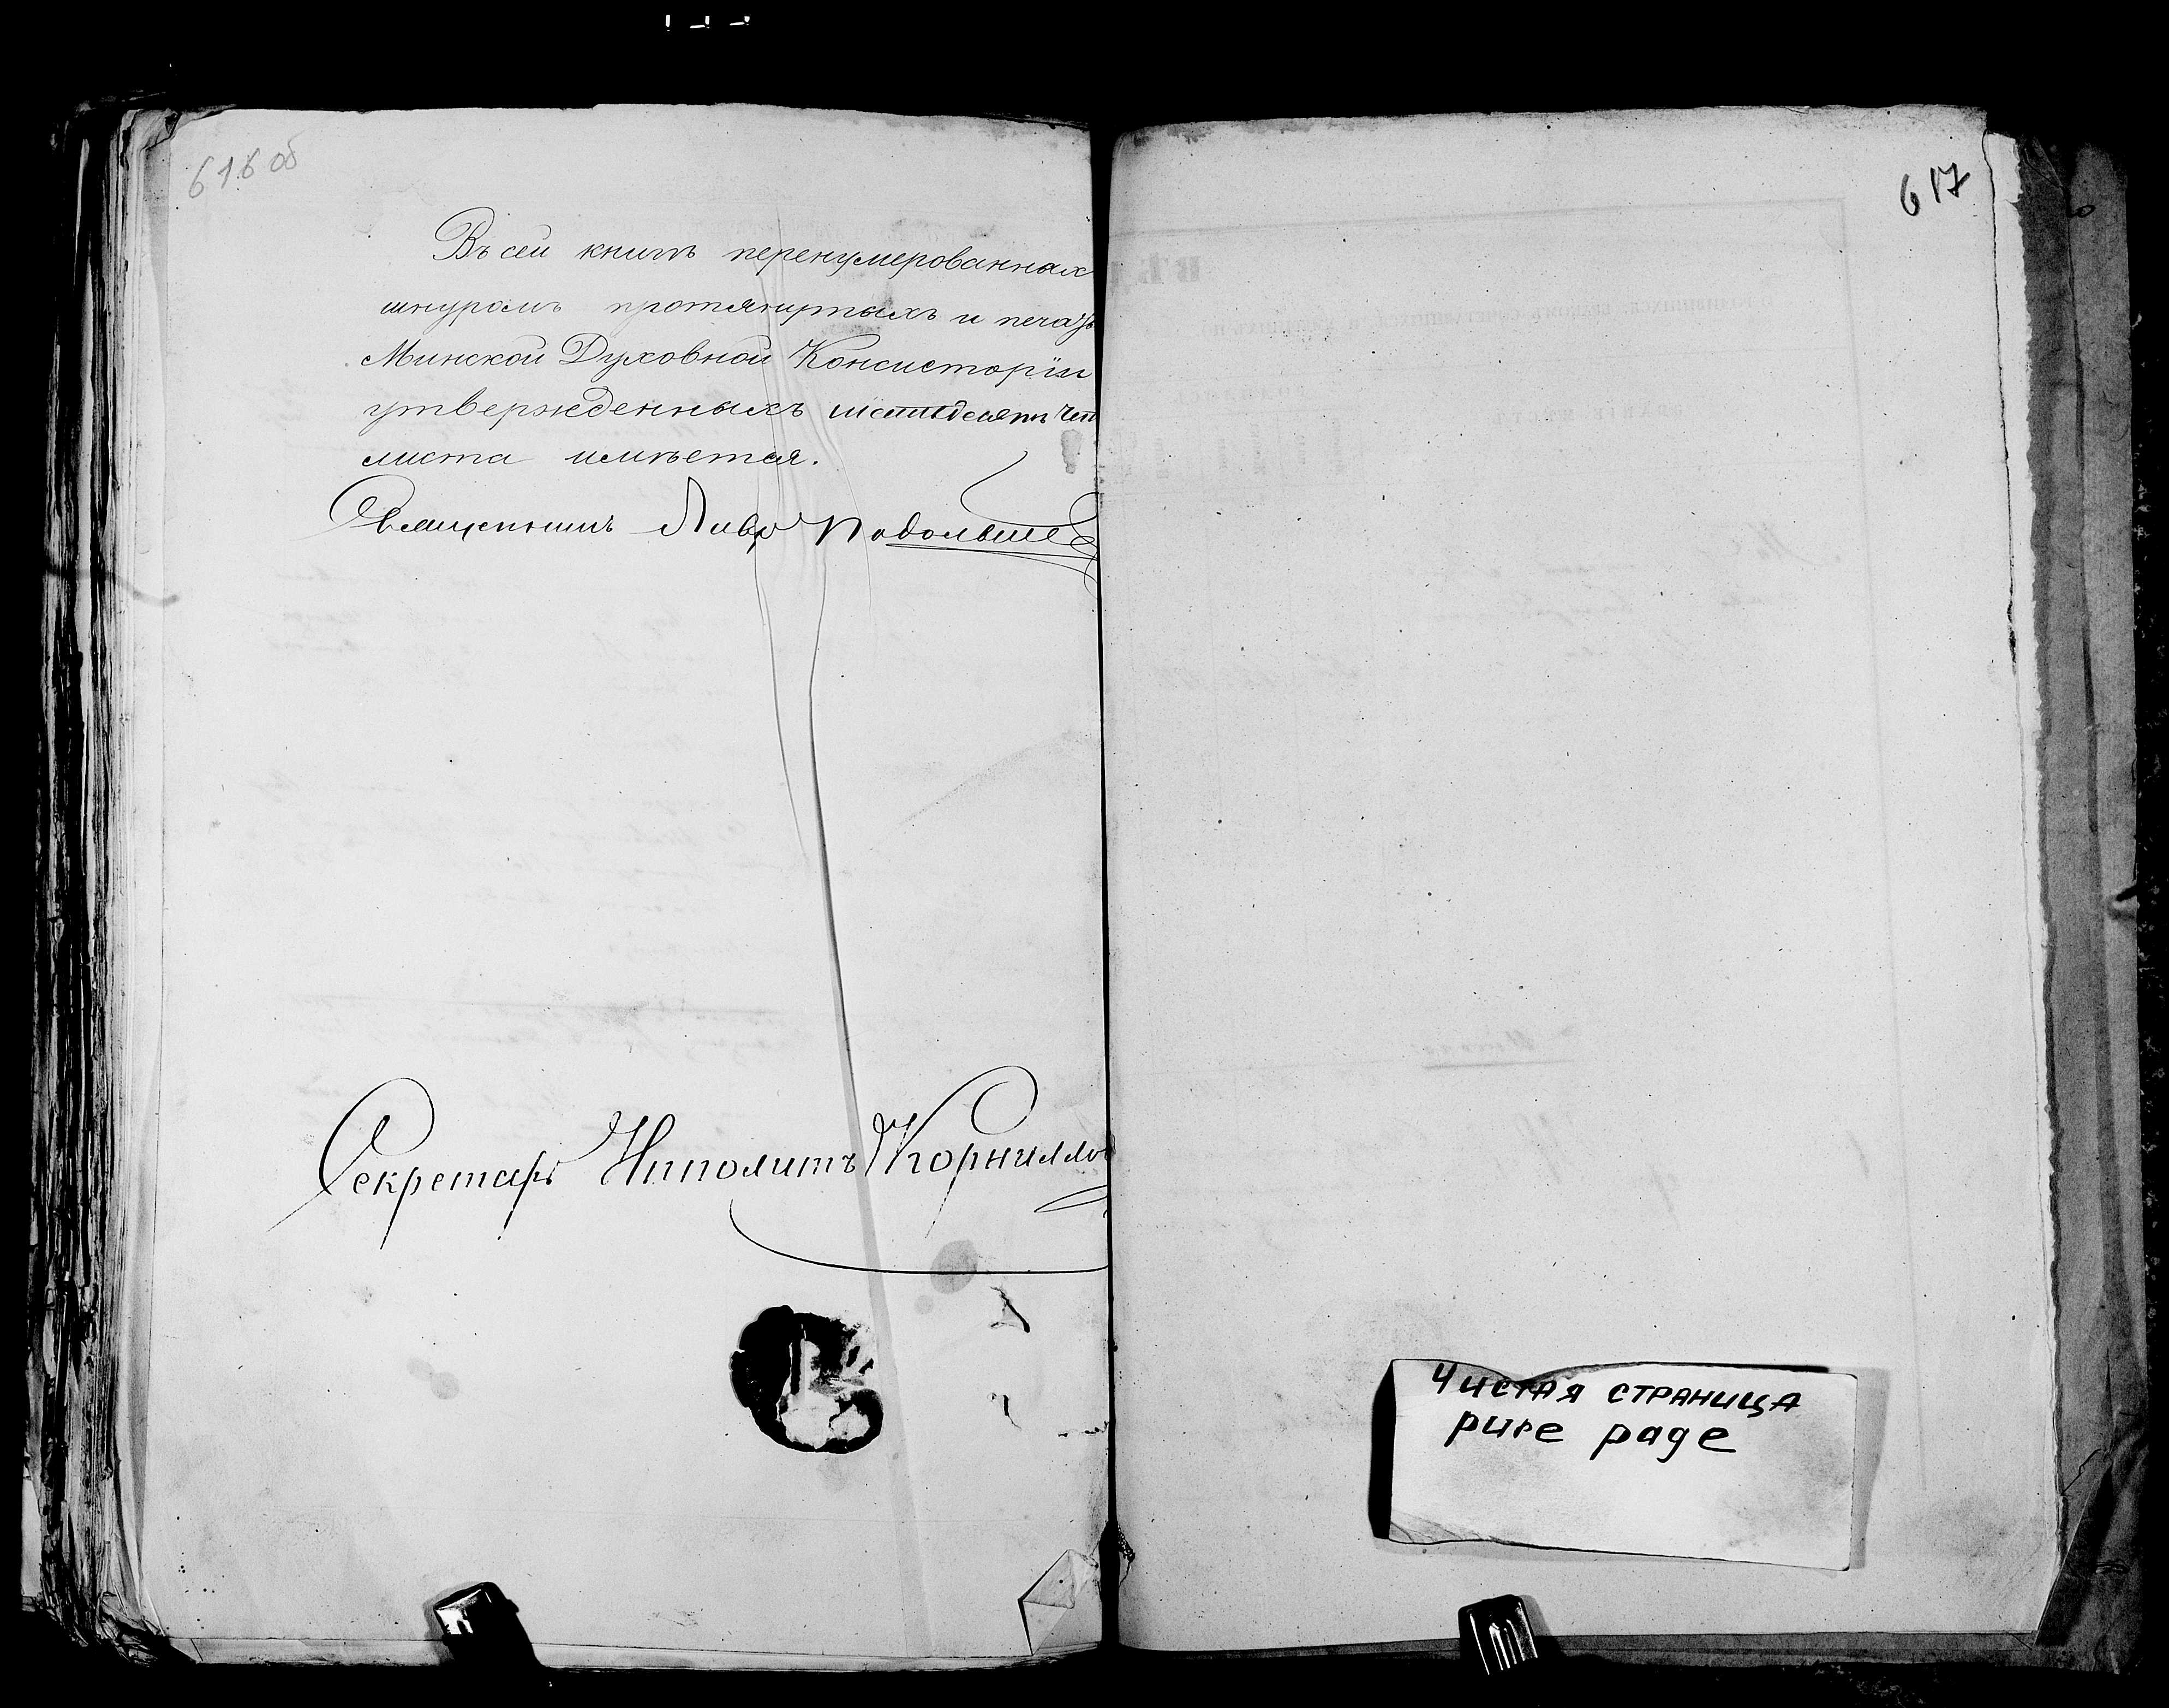 616 об
Въ сей книгѣ перенумерованныхъ
шнуромъ протянутыхъ и печа
Минской Духовной Консисторіи
утвержденныхъ шестьдесятъ чет
листа имѣется.
Священникъ
Секретарь Ипполитъ Корнилло
617
Чистая страница
pure page